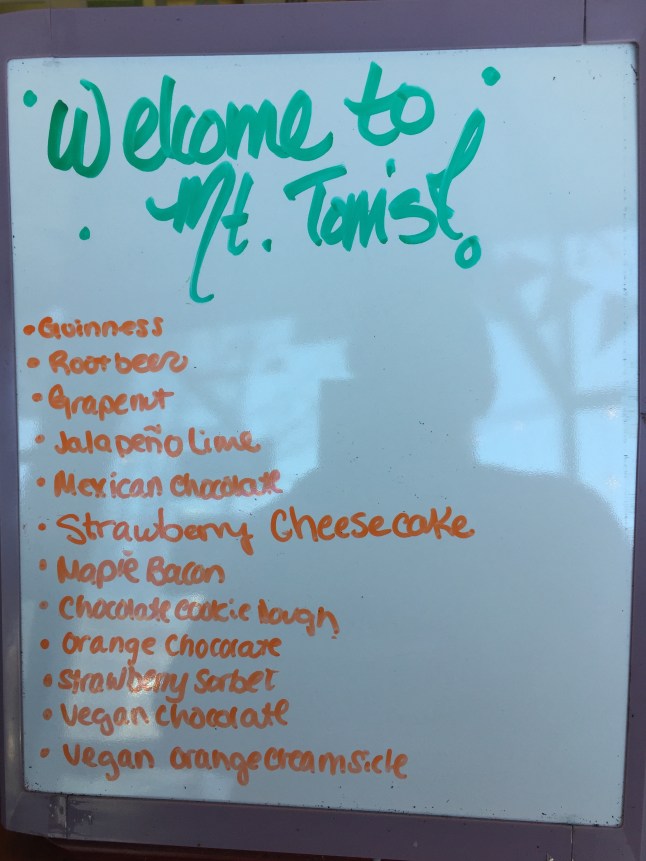 Welcome to
Mt. Tom's!
Guinness
Rootbeer
Grapenut
Jalapeño Lime
Mexican Chocolate
Strawberry Cheesecake
Maple Bacon
Chocolate cookie dough
Orange Chocolate
Strawberry Sorbet
Vegan Chocolate
Vegan orangecreamsicle